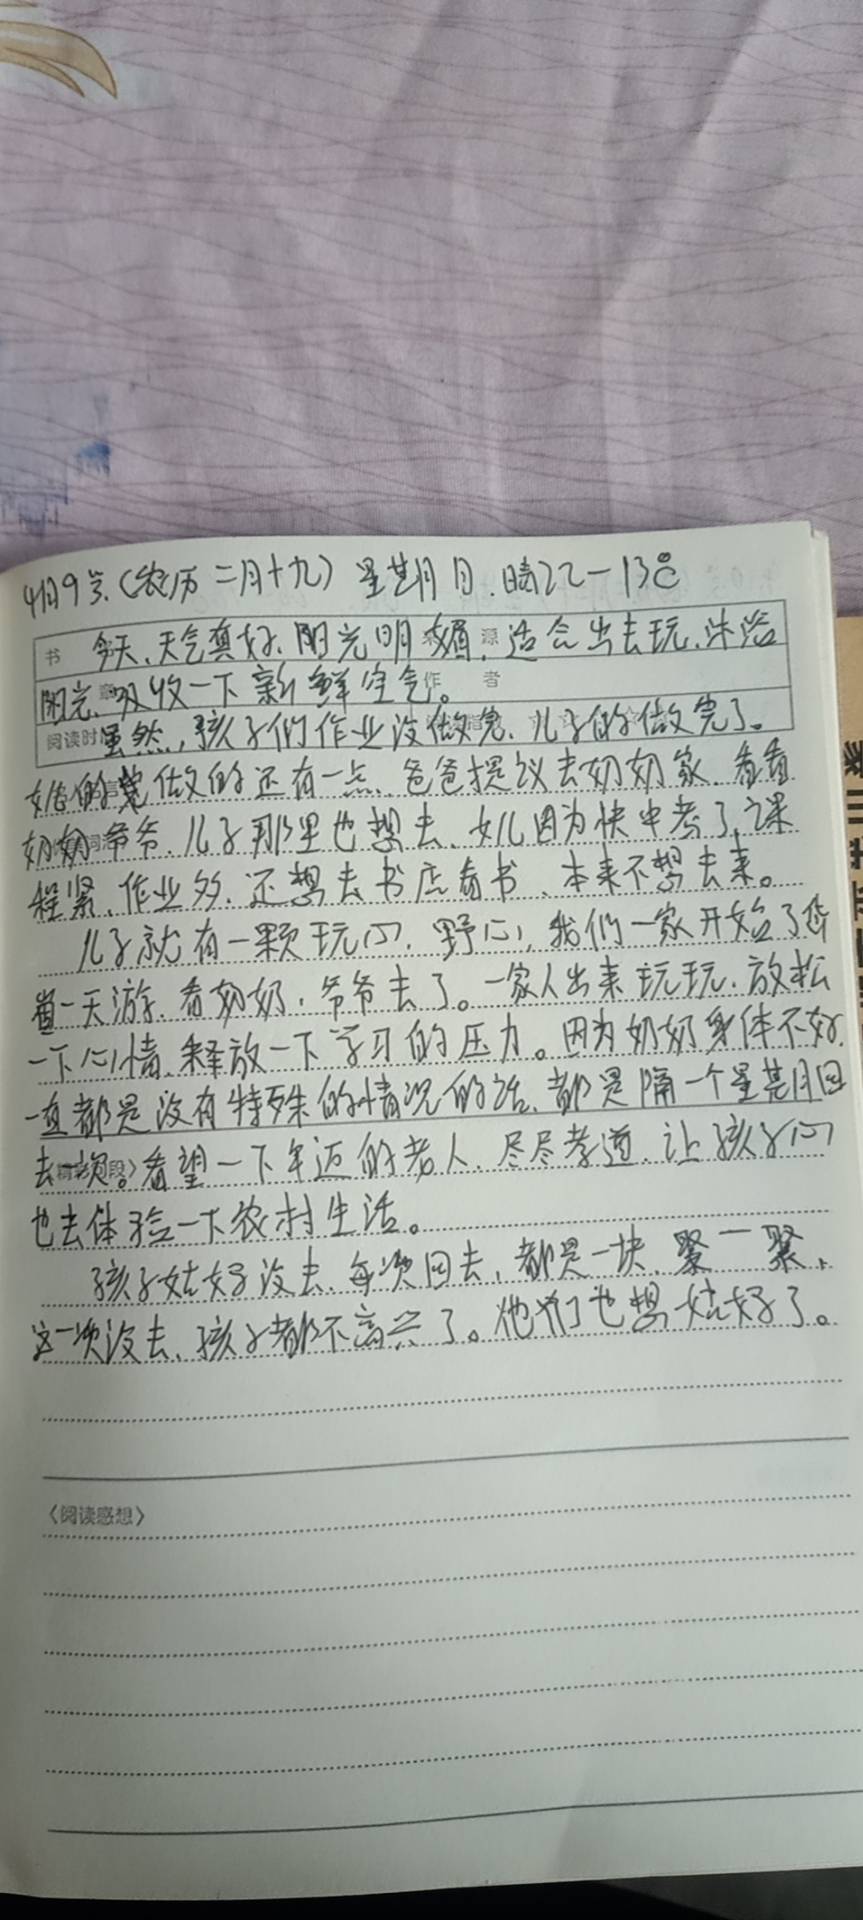 4月9号.(农历二月十九)星期日.晴22-13℃
书 今天、天气真好、阳光明媚,适合出去玩、沐浴 源
阳光、吸收一下新鲜空气。 作者
阅读时 虽然,孩子们作业没做完、儿子的做完了。
做的还有一点、爸爸提议去奶奶家、看看
奶奶爷爷、儿子那里也想去、女儿因为快中考了,课
程紧、作业多、还想去书店看书、本来不想去来。
儿子就有一颗玩心、野心,我们一家开始了
一天游、看奶奶、爷爷去了。一家人出来玩玩、放松
一下心情、释放一下学习的压力。因为奶奶身体不好、
一直都是没有特殊的情况的话、都是隔一个星期回
去一次。看望一下年迈的老人、尽尽孝道、让孩子们
也去体验一下农村生活。
孩子姑姑没去、每次回去,都是一块、聚一聚、
这一次没去、孩子都不高兴了。他们也想姑姑了。
〈阅读感想〉